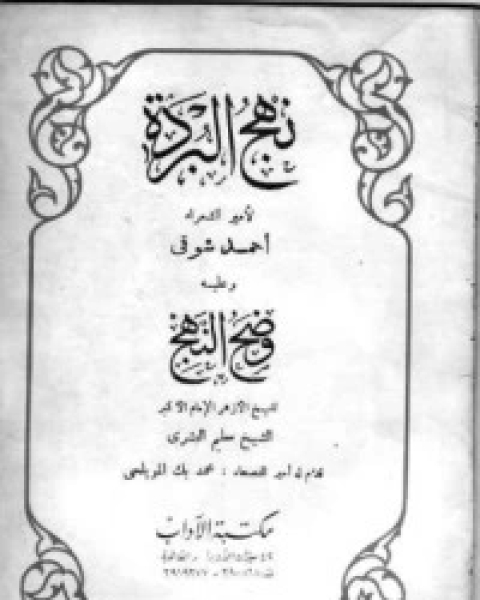 نهج البردة
لأمير الشعراء
أحمد شوقي
وعليه
وضح النهج
لشيخ الأزهر الإمام الأكبر
الشيخ سليم البشرى
قدم له أمير محمد بك المويلحى
مكتبة الآداب